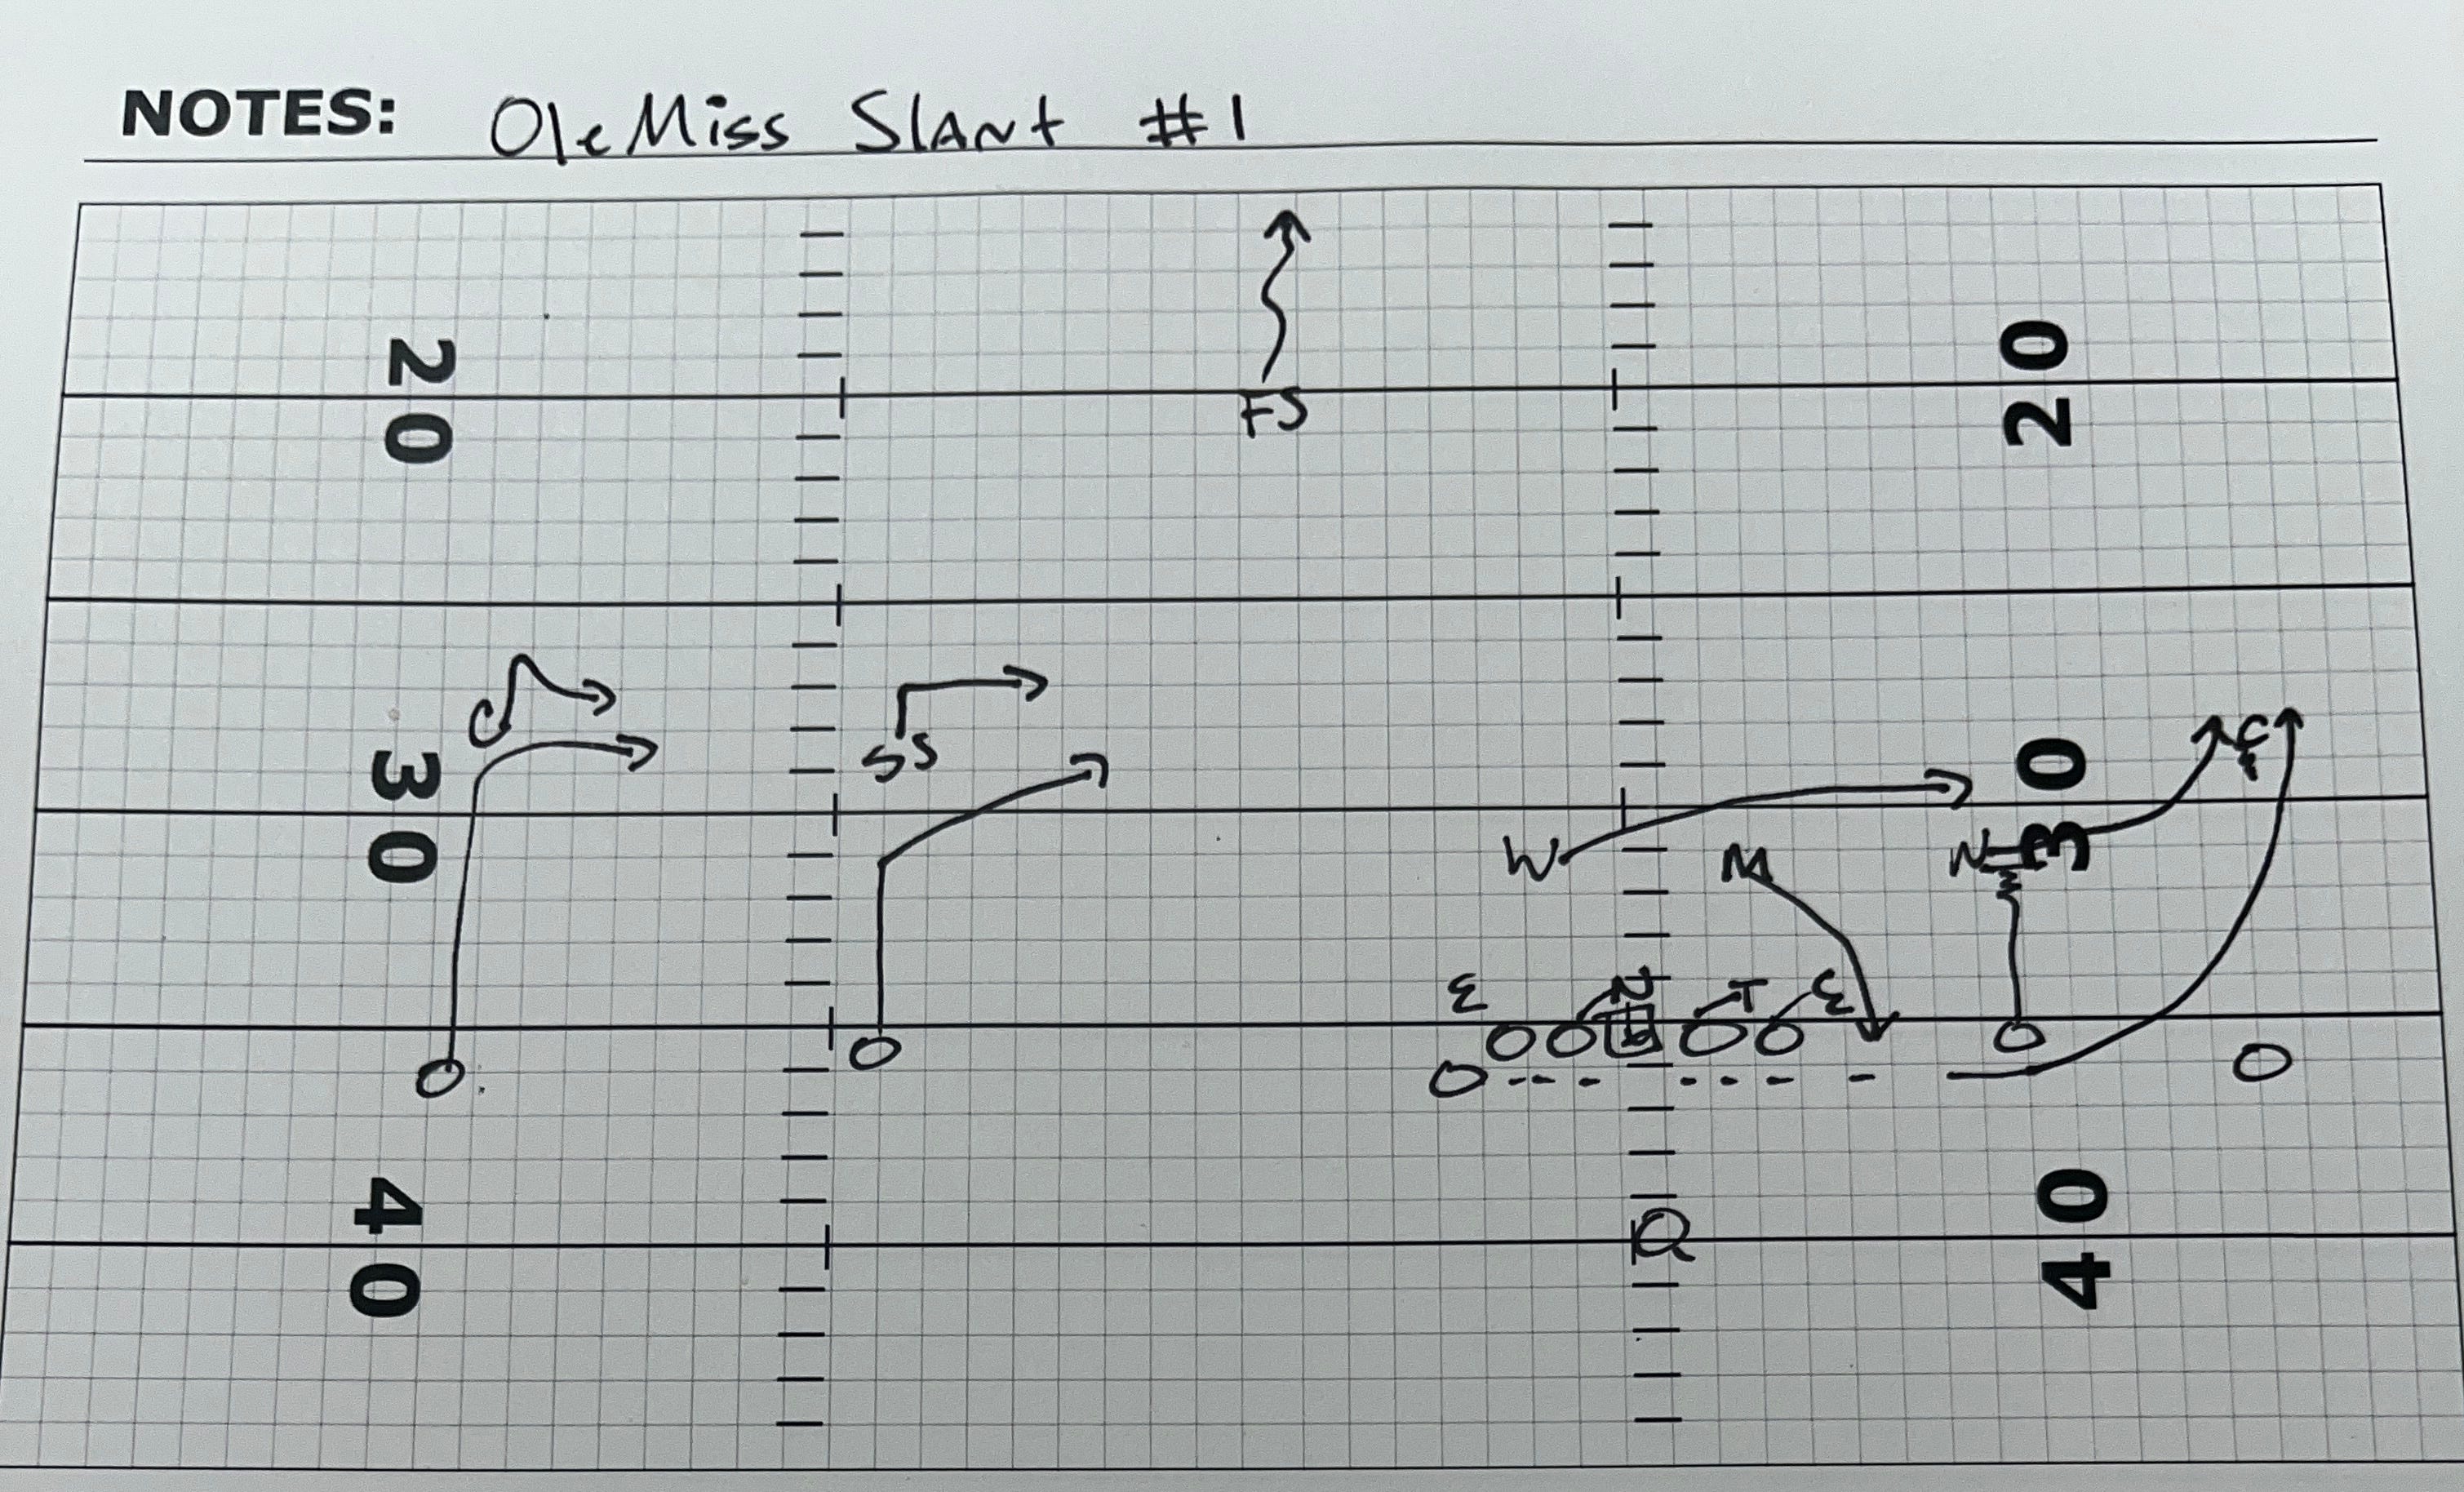 NOTES: Ole Miss Slant #1
FS
20 20
C SS C
30 30
W M N
E N T E
Q
40 40